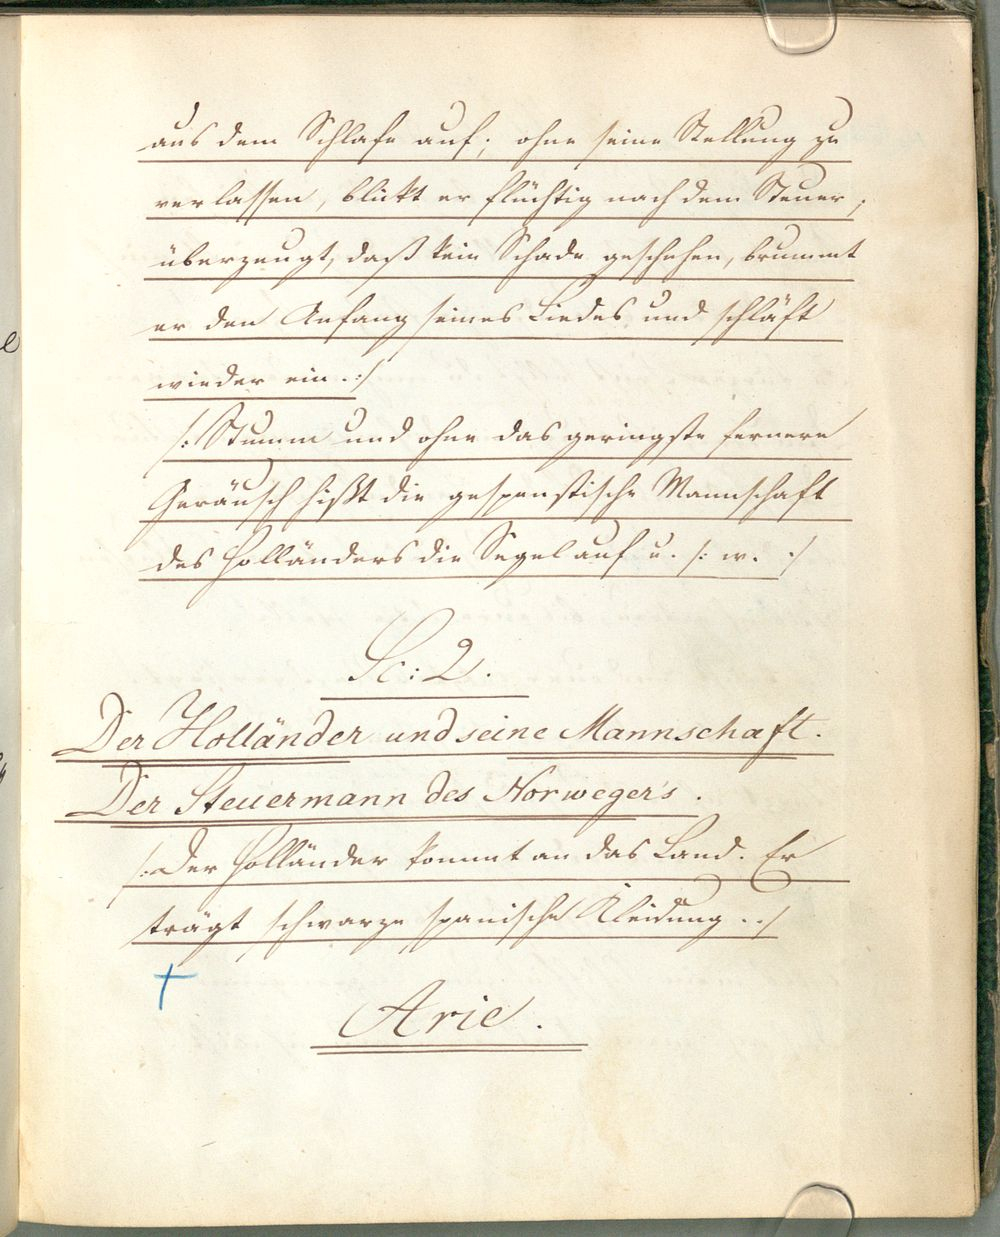 aus dem Schlafe auf; ohne seine Stellung zu
verlassen, blickt er flüchtig nach dem Steuer,
überzeugt, daß kein Schade geschehen, brummt
er den Anfang seines Liedes und schläft
wieder ein. :/
/: Stumm und ohne das geringste fernere
Geräusch hißt die gespenstische Mannschaft
des Holländers die Segel auf u. s: w. :/
Sc: 2.
Der Holländer und seine Mannschaft.
Der Steuermann des Norweger's.
/: Der Holländer kommt an das Land. Er
trägt schwarze spanische Kleidung. :/
Arie.